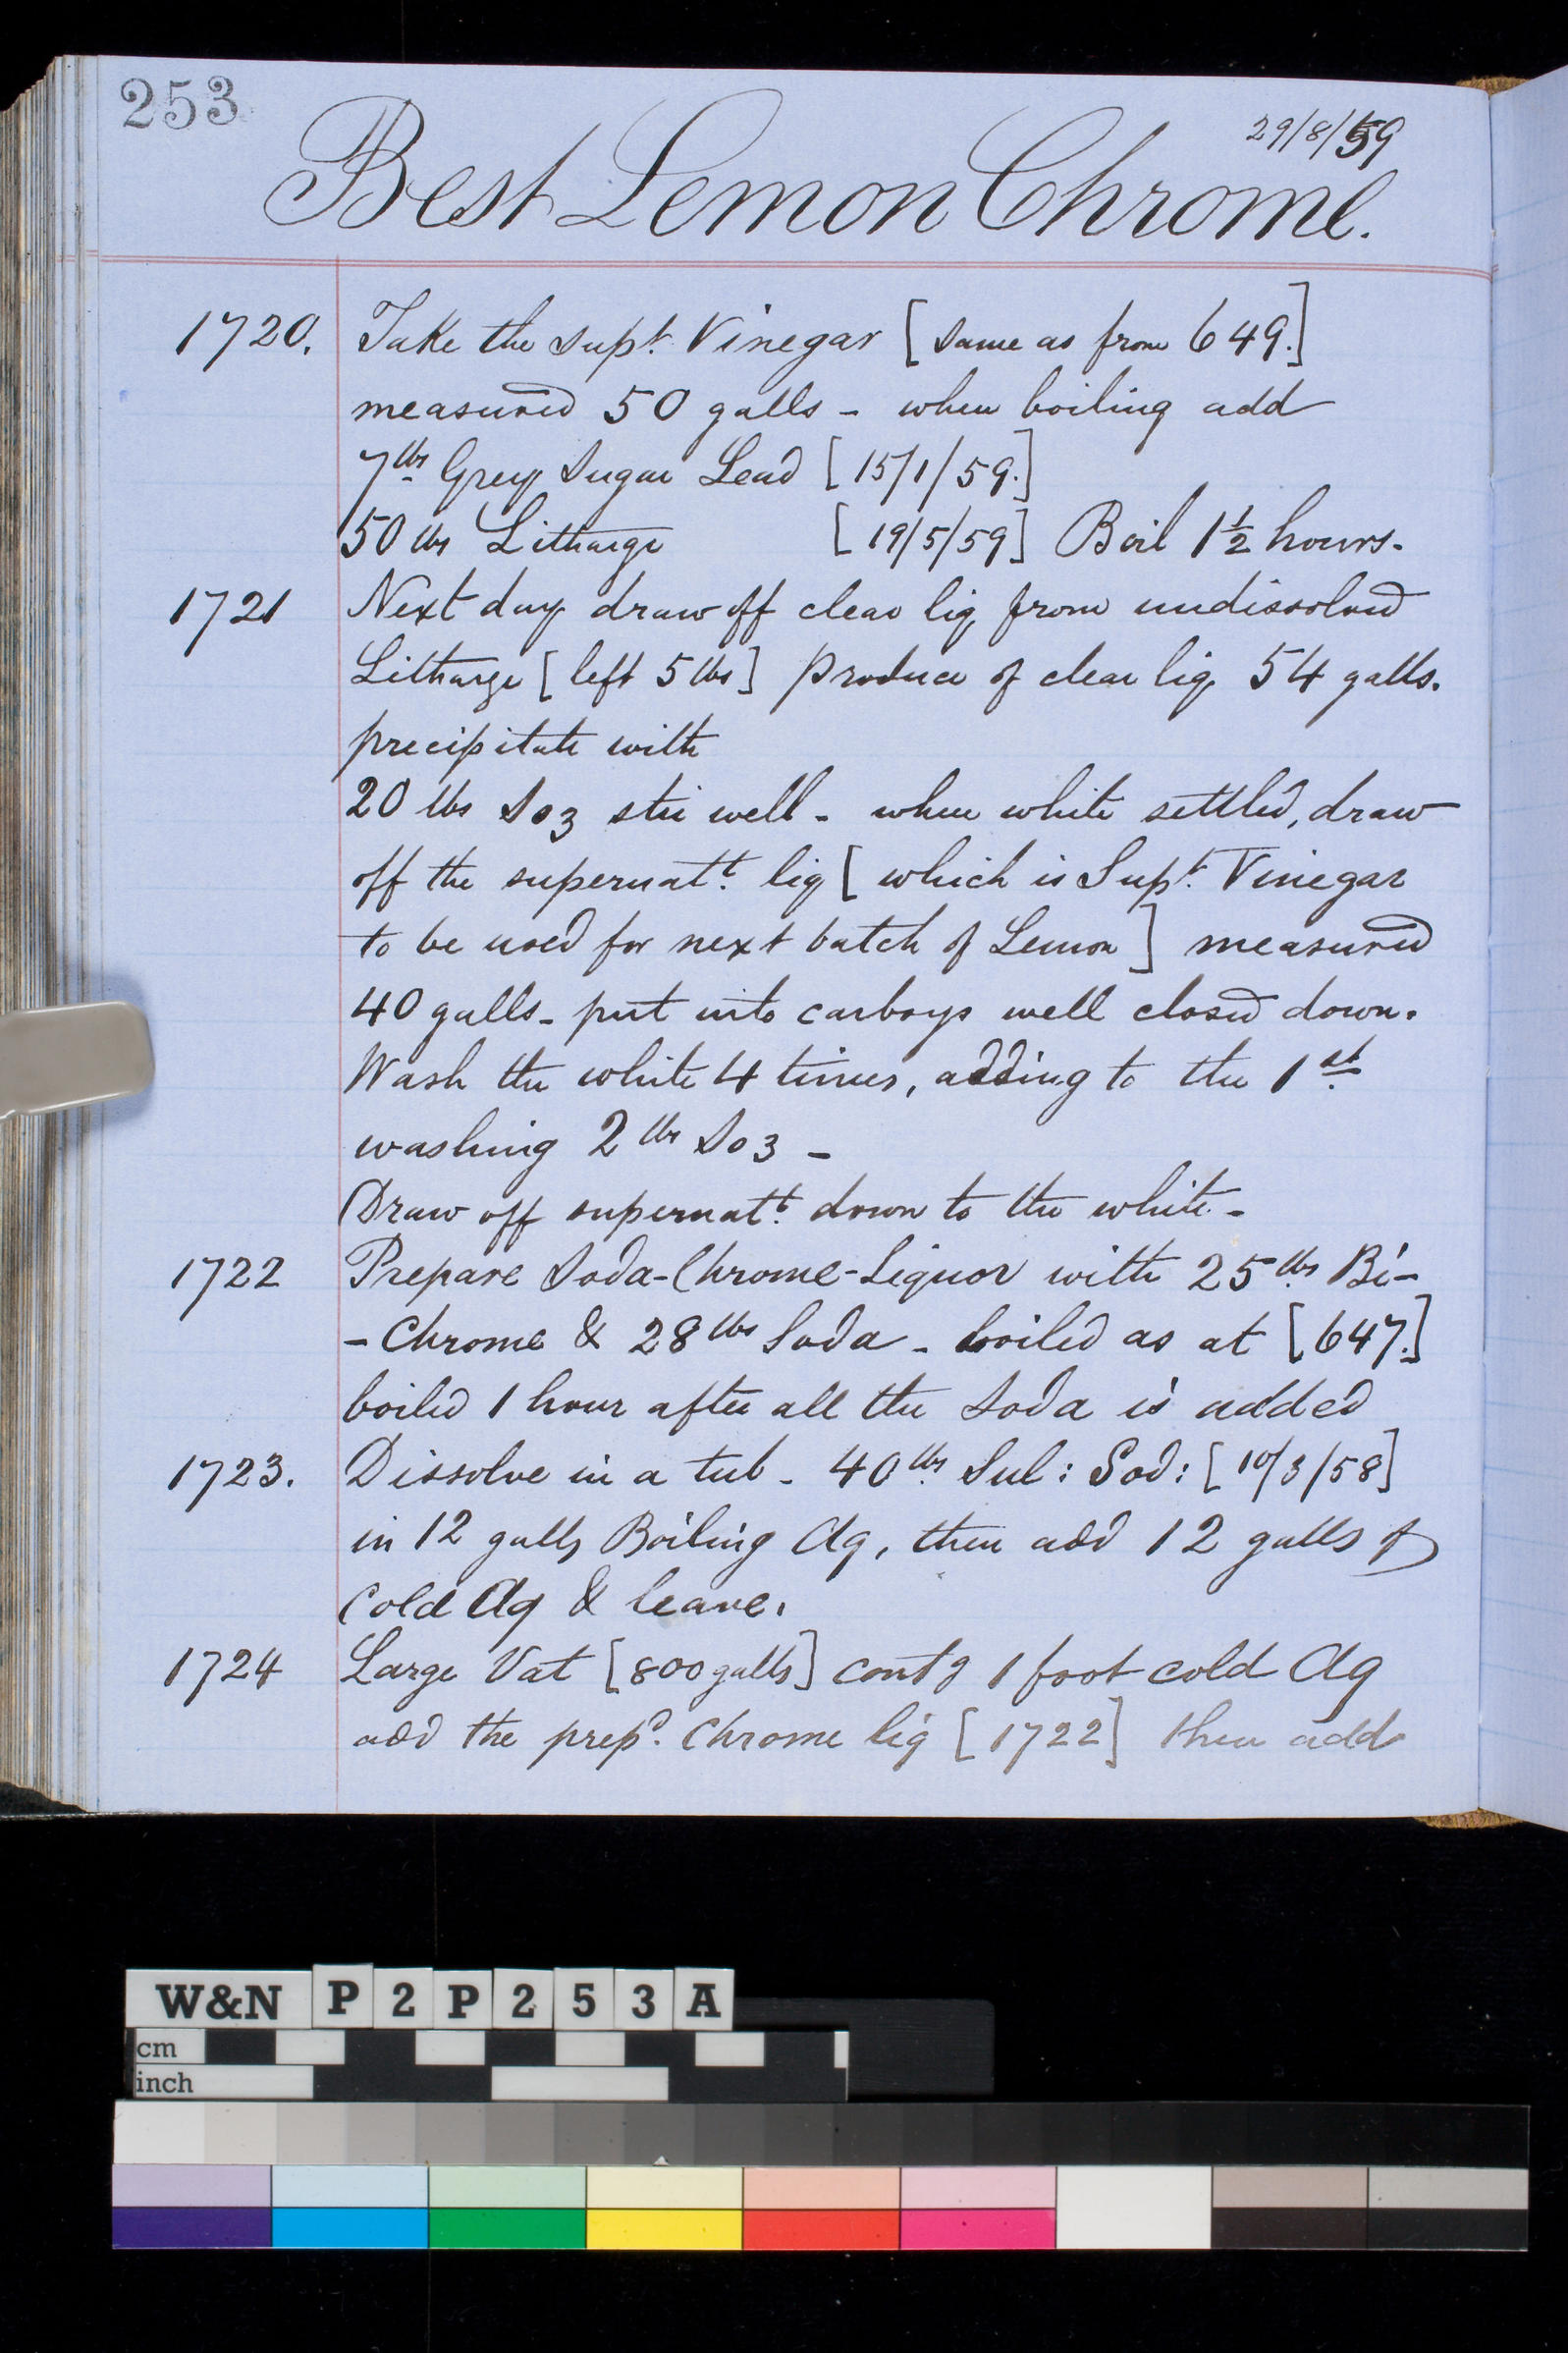 253
29/8/59
Best Lemon Chrome.
1720. Take the supt. Vinegar [same as from 649.]
measured 50 galls - when boiling add
7 lbs Grey Sugar Lead [15/1/59.]
50 lbs Litharge [19/5/59] Boil 1½ hours.
1721 Next day draw off clear liq from undissolved
Litharge [left 5 lbs] produce of clear liq 54 galls.
precipitate with
20 lbs So3 stir well - when white settled, draw
off the supernatt. liq [which is Supt. Vinegar
to be used for next batch of Lemon] measured
40 galls - put into carboys well closed down.
Wash the white 4 times, adding to the 1st
washing 2 lbs So3 -
Draw off supernatt. down to the white -
1722 Prepare Soda-Chrome-Liquor with 25 lbs Bi-
- Chrome & 28 lbs Soda - boiled as at [647.]
boiled 1 hour after all the Soda is added
1723. Dissolve in a tub - 40 lbs Sul: Sod: [10/3/58]
in 12 galls Boiling Aq, then add 12 galls of
Cold Aq & leave.
1724 Large Vat [800 galls] contg 1 foot cold Aq
add the prepd. Chrome liq [1722] then add
W&N P2P253A
cm
inch